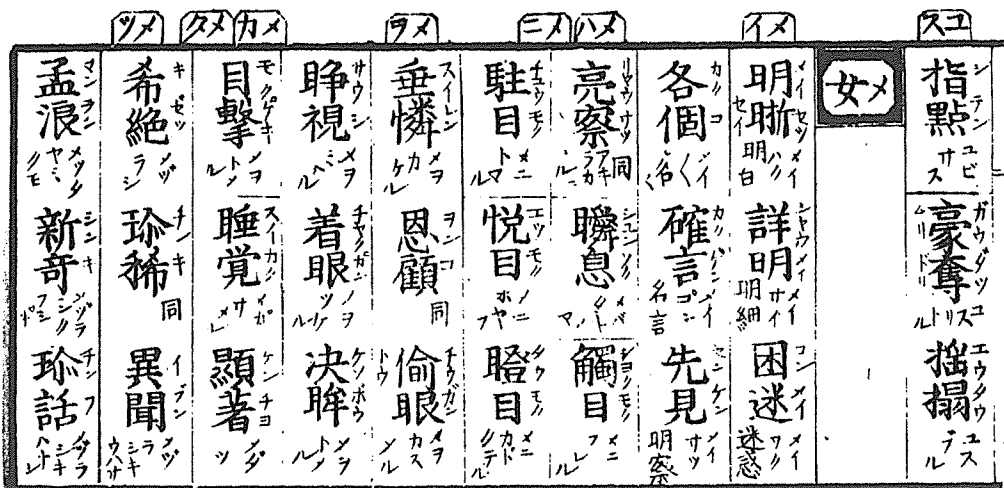 ユス
メイ
メハ
メニ
メヲ
メカ
メク
メツ
指點 シテン ユビニサス
豪奪 ガウダツ ユスリトル ムリドリ
搖搨 エウタウ ユスブル
女 メ
明晣 メイセツ セイ メイハク 明白
詳明 シヤウメイ メイサイ 明細
困迷 コンメイ メイワク 迷惑
各個 カクコ メイ〱 名〱
確言 カクゲン メイゴン 名言
先見 センケン メイサツ 明察
亮察 リヤウサツ 同 アキラカニ
瞬息 シユンソク メバタキノマ
觸目 シヨクモク メニフル
駐目 チユウモク メニトマル
悦目 エツモク メニ
瞪目 タウモク メニカドタテル
垂憐 スイレン メヲカケル
恩顧 ヲンコ 同
偷眼 チウガン トウ メヲカスメル
睜視 サウシ メヲミハル
着眼 チヤクガン メヲツケル
決眸 ケツボウ メヲトメ
目擊 モクゲキ メヲトメル
睡覚 スイカク メガサメ
顯著 ケンチヨ メダツ
希絶 キゼツ メヅラシ
珎稀 チンキ 同
異聞 イブン メヅラシキウハサ
孟浪 マンラン メツタヤミクモ
新奇 シンキ メヅラシク
珎話 チンワ メヅラシキハナシ